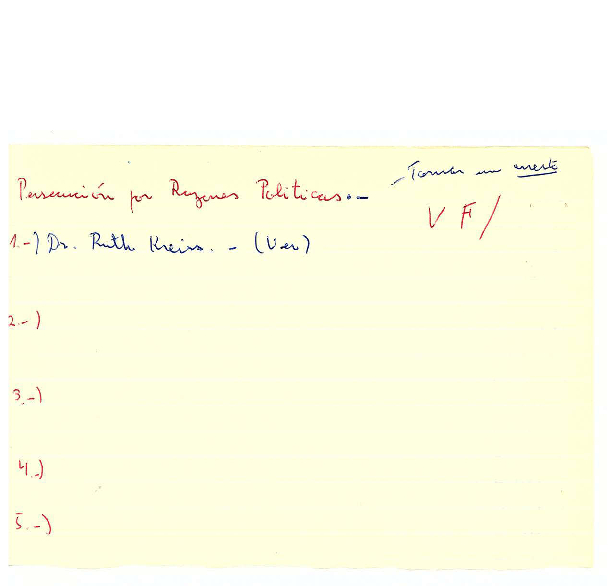 - Tomar un
Persecución por Razones Politicas.-
V F/
1.-) Dr. Ruth Kreiss. - (Ver)
2.-)
3.-)
4.-)
5.-)